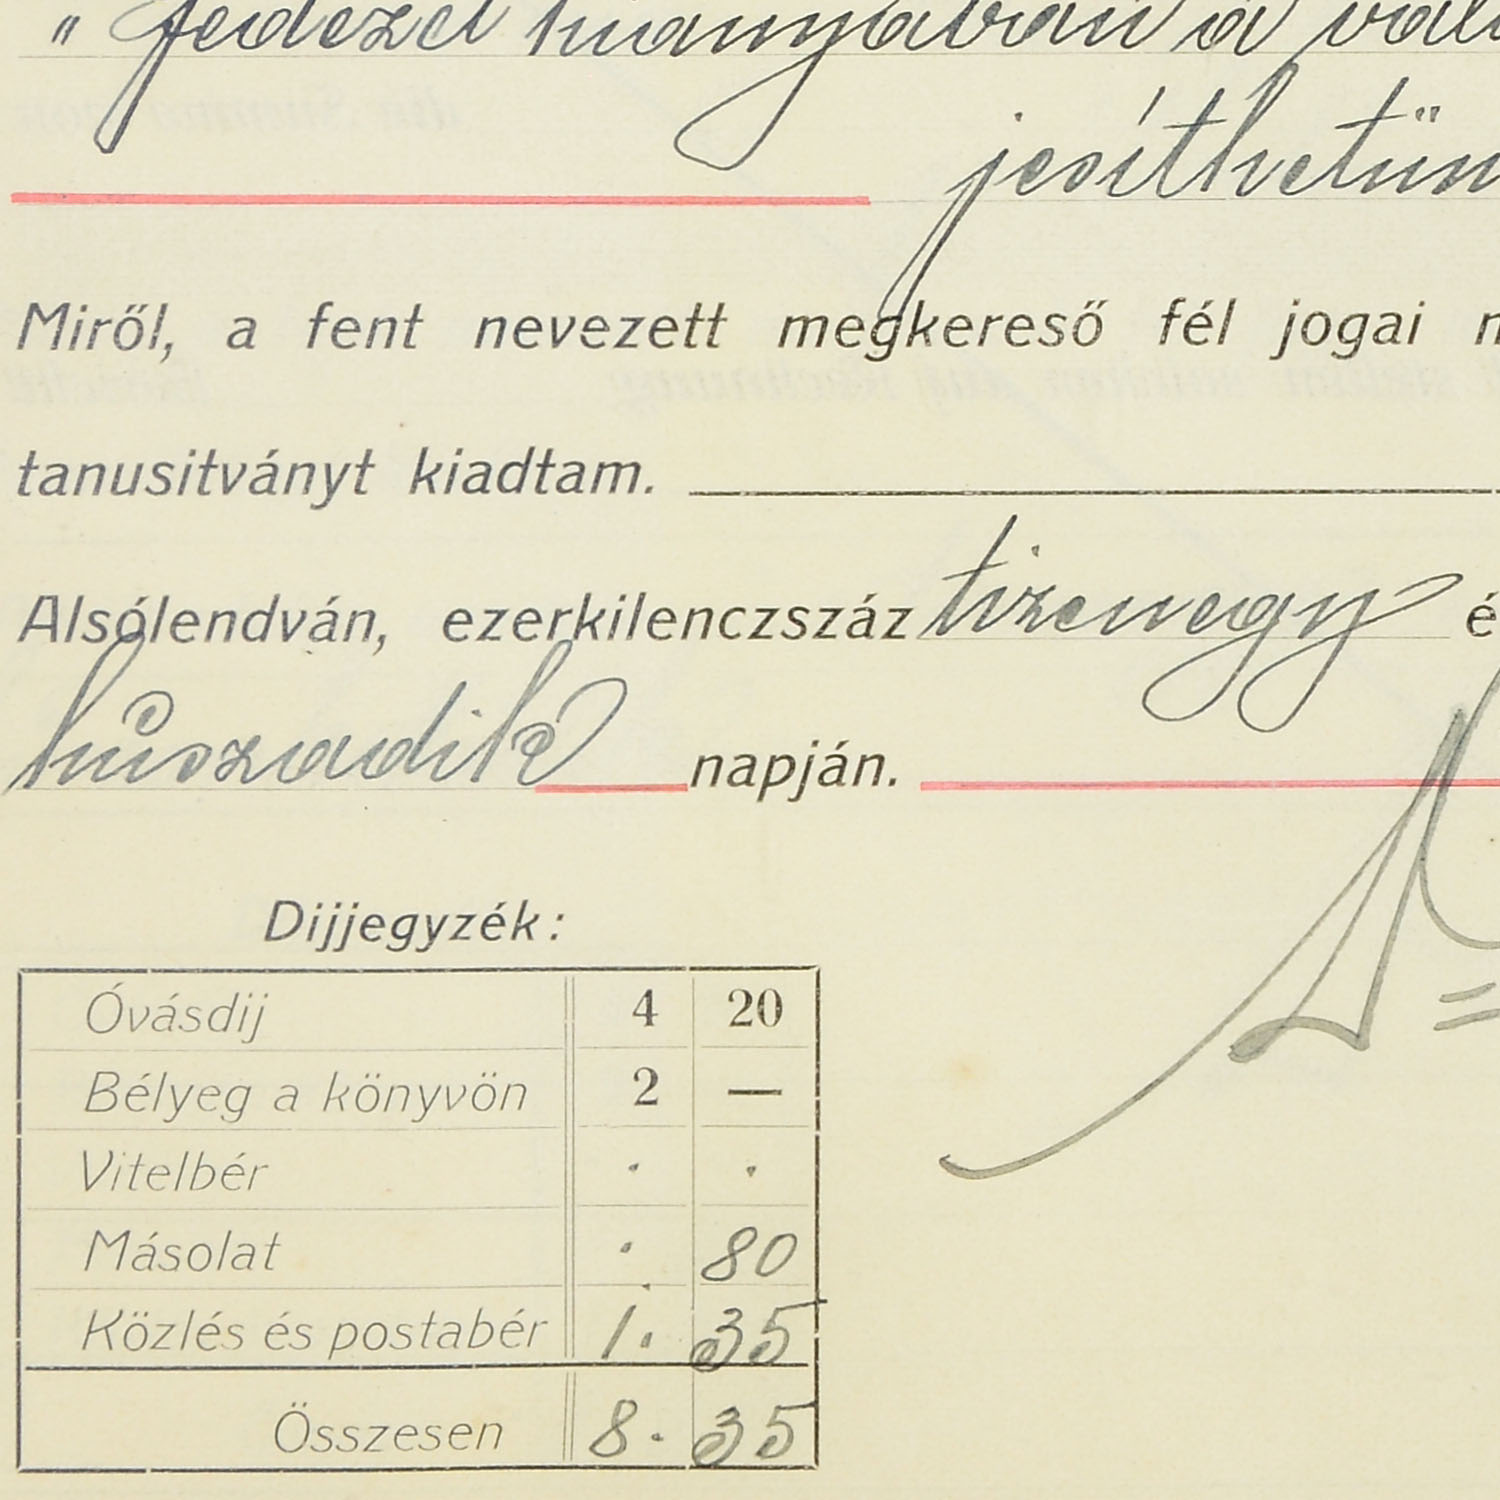 " fedezet hiányában a vál
jesíthetün
Miről, a fent nevezett megkereső fél jogai
tanusitványt kiadtam.
Alsólendván, ezerkilenczszáz tizenegy é
húszadik napján.
Dijjegyzék:
Óvásdij 4 20
Bélyeg a könyvön 2 —
Vitelbér . .
Másolat . 80
Közlés és postabér 1. 35
Összesen 8. 35